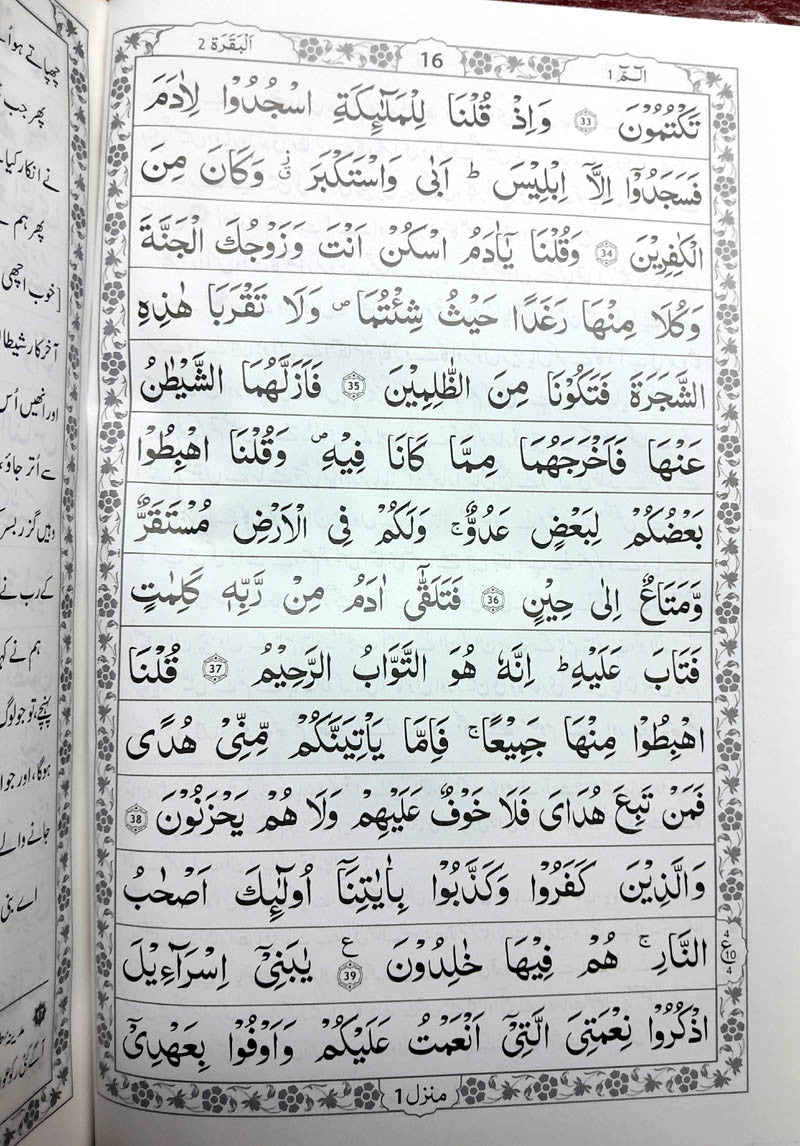 الٓمّٓ 1
16
اَلْبَقَرَة 2
تَكْتُمُوْنَ 33 وَاِذْ قُلْنَا لِلْمَلٰٓئِكَةِ اسْجُدُوْا لِاٰدَمَ
فَسَجَدُوْٓا اِلَّآ اِبْلِيْسَ ؕ اَبٰى وَاسْتَكْبَرَ ۗ وَكَانَ مِنَ
الْكٰفِرِيْنَ 34 وَقُلْنَا يٰٓاٰدَمُ اسْكُنْ اَنْتَ وَزَوْجُكَ الْجَنَّةَ
وَكُلَا مِنْهَا رَغَدًا حَيْثُ شِئْتُمَا ۪ وَلَا تَقْرَبَا هٰذِهِ
الشَّجَرَةَ فَتَكُوْنَا مِنَ الظّٰلِمِيْنَ 35 فَاَزَلَّهُمَا الشَّيْطٰنُ
عَنْهَا فَاَخْرَجَهُمَا مِمَّا كَانَا فِيْهِ ۪ وَقُلْنَا اهْبِطُوْا
بَعْضُكُمْ لِبَعْضٍ عَدُوٌّ ۚ وَلَكُمْ فِى الْاَرْضِ مُسْتَقَرٌّ
وَّمَتَاعٌ اِلٰى حِيْنٍ 36 فَتَلَقّٰٓى اٰدَمُ مِنْ رَّبِّهٖ كَلِمٰتٍ
فَتَابَ عَلَيْهِ ؕ اِنَّهٗ هُوَ التَّوَّابُ الرَّحِيْمُ 37 قُلْنَا
اهْبِطُوْا مِنْهَا جَمِيْعًا ۚ فَاِمَّا يَاْتِيَنَّكُمْ مِّنِّىْ هُدًى
فَمَنْ تَبِعَ هُدَاىَ فَلَا خَوْفٌ عَلَيْهِمْ وَلَا هُمْ يَحْزَنُوْنَ 38
وَالَّذِيْنَ كَفَرُوْا وَكَذَّبُوْا بِاٰيٰتِنَآ اُولٰٓئِكَ اَصْحٰبُ
النَّارِ ۚ هُمْ فِيْهَا خٰلِدُوْنَ ع 39 يٰبَنِىْٓ اِسْرَآءِيْلَ
4 ع 10 4
اذْكُرُوْا نِعْمَتِىَ الَّتِىْٓ اَنْعَمْتُ عَلَيْكُمْ وَاَوْفُوْا بِعَهْدِىْٓ
منزل 1
چھپاتے ہو
پھر جب
نے انکار کیا
پھر ہم
خوب اچھی
آخر کار شیطا
اور انھیں اُس
سے اُتر جاؤ،
وہیں گزر بس
کے رب نے
ہم نے کہ
پہنچے، تو جو لوگ
ہوگا، اور جو
جانے والے
اے بنی